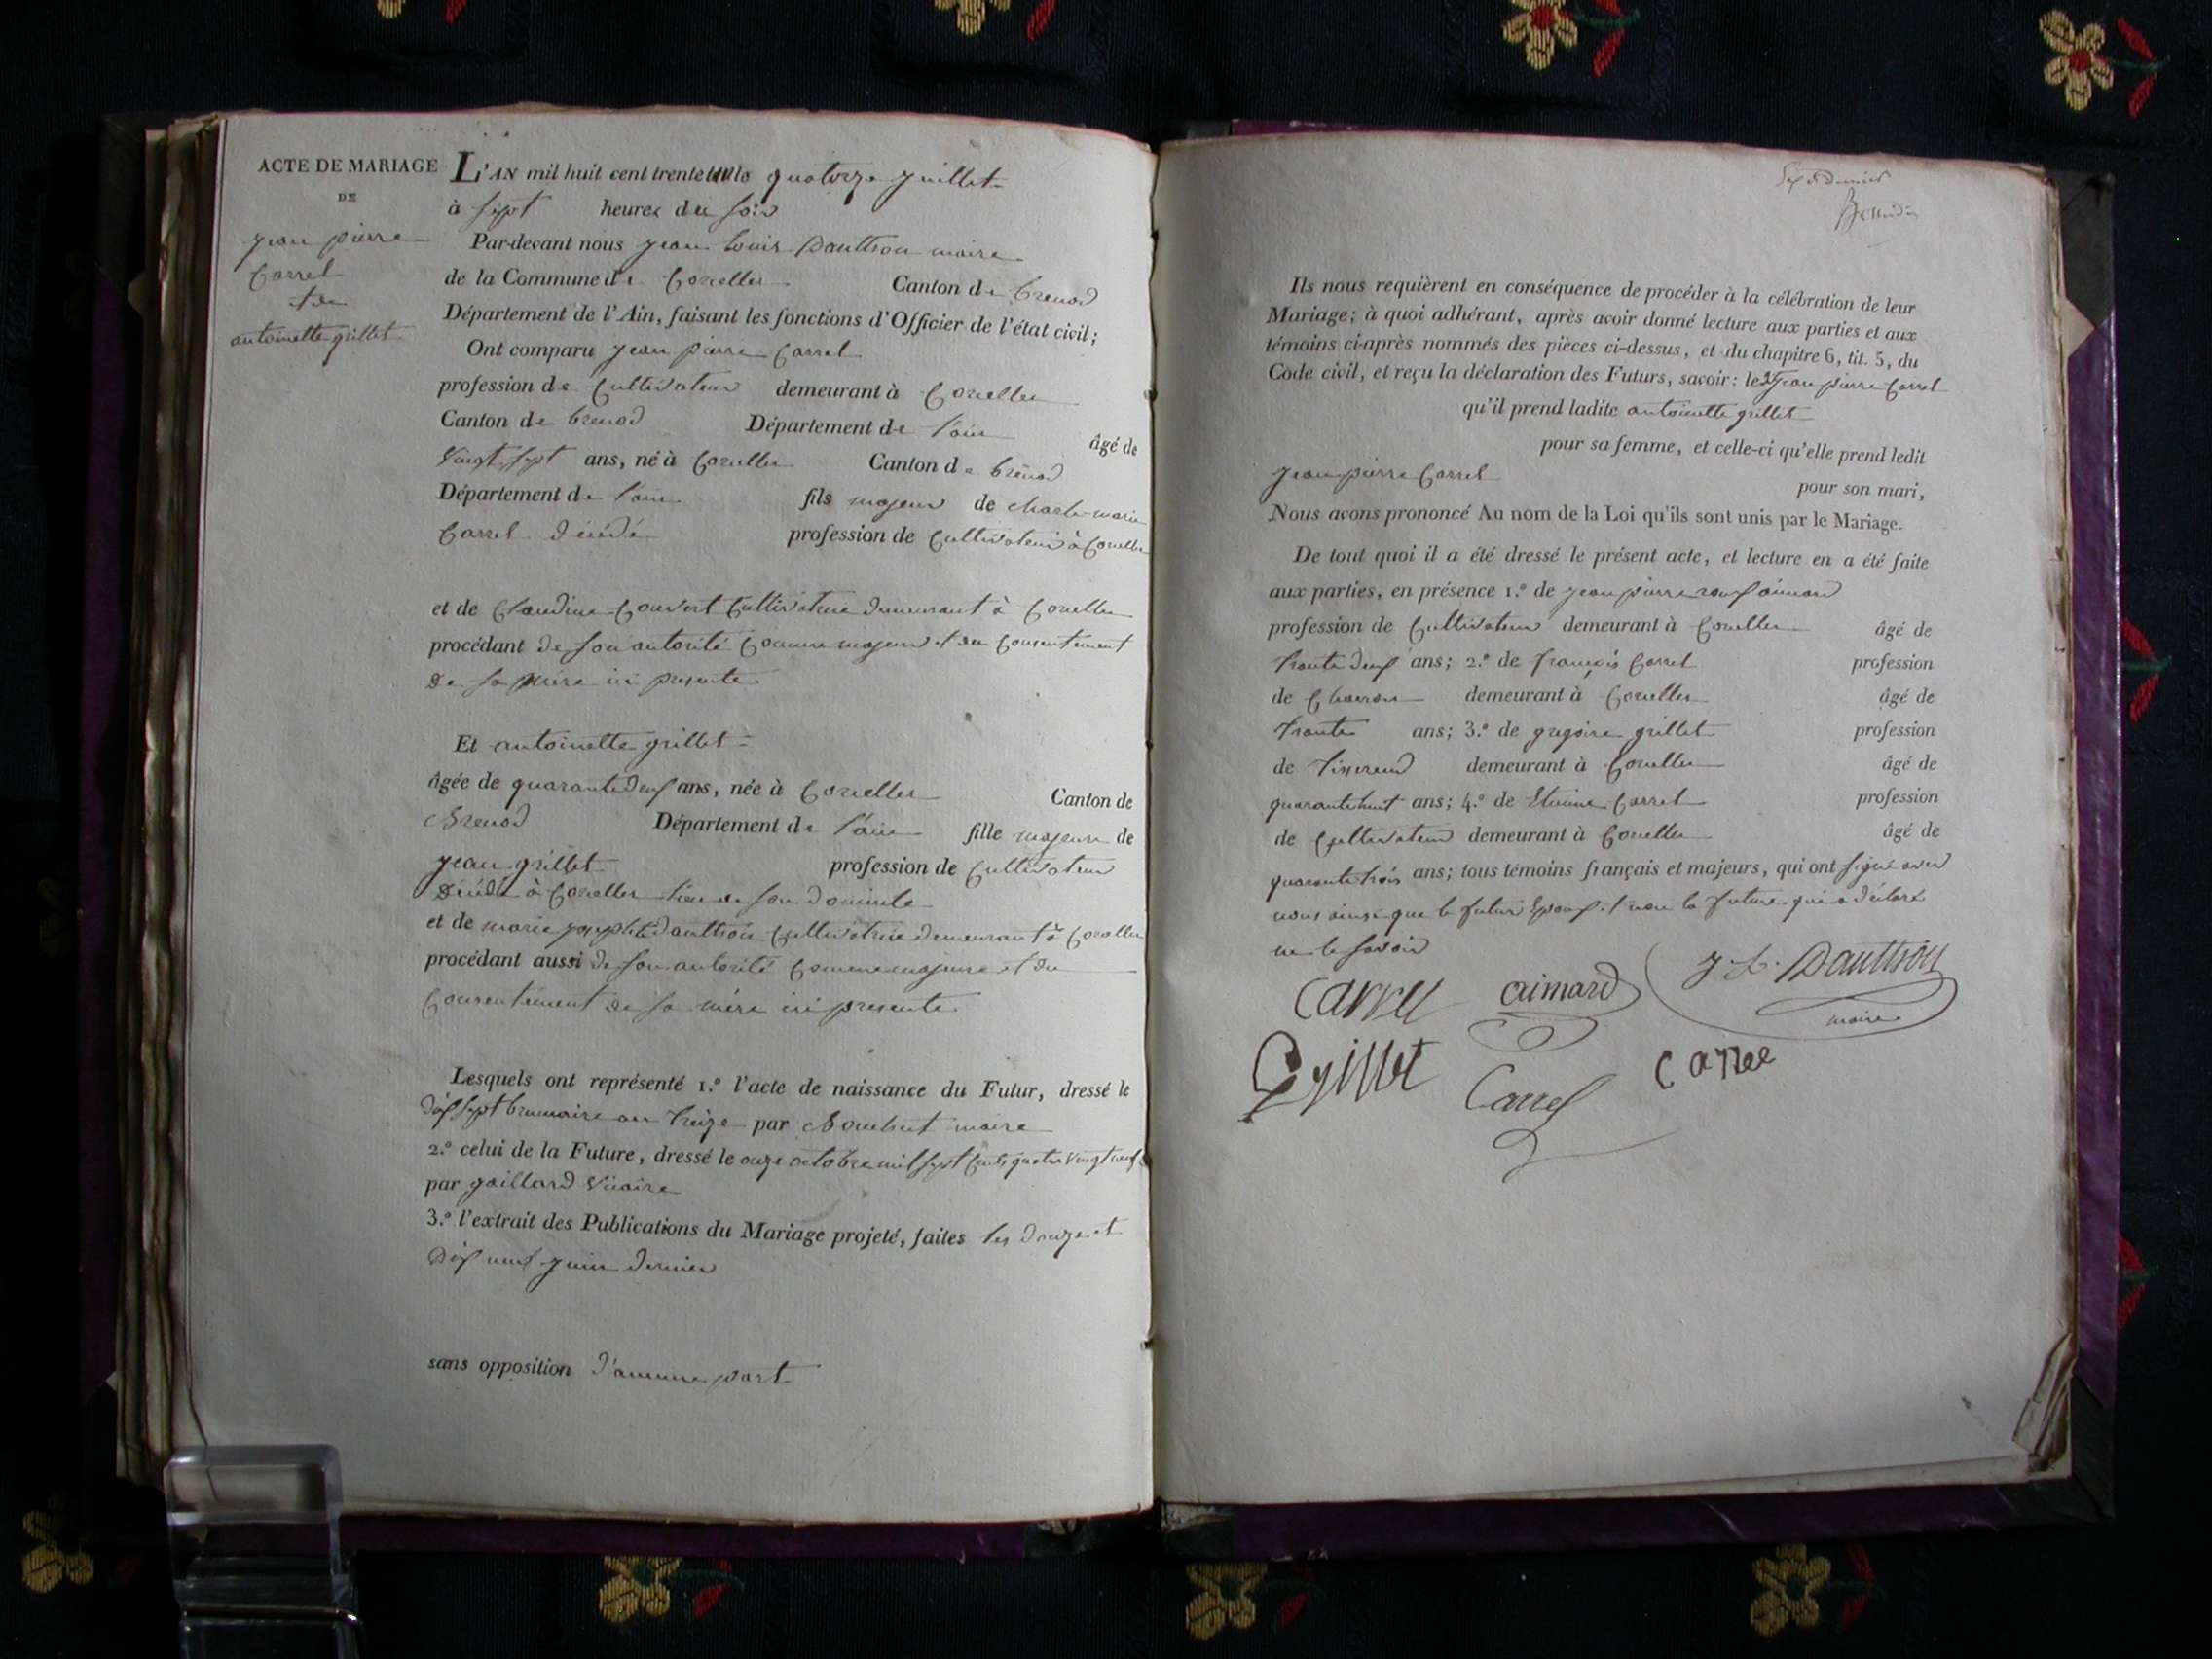 ACTE DE MARIAGE
DE
jean pierre
Carrel
et de
antoinette grillet
L'AN mil huit cent trente un le quatorze juillet
à sept heures du soir
Par-devant nous jean Louis Dauthon maire
de la Commune de Corcelles Canton de brenod
Département de l'Ain, faisant les fonctions d'Officier de l'état civil;
Ont comparu jean pierre Carrel
profession de Cultivateur demeurant à Corcelles
Canton de brenod Département de l'ain âgé de
vingt sept ans, né à Corcelles Canton de brenod
Département de l'ain fils majeur de charle-marie
Carrel décédé profession de Cultivateur à Corcelles
et de Claudine Convert Cultivatrice demeurant à Corcelles
procédant de son autorité Comme majeur et du Consentement
de sa mère ici presente
Et antoinette grillet
âgée de quarante deux ans, née à Corcelles Canton de
Brenod Département de l'ain fille majeure de
jean grillet profession de Cultivateur
décédé à Corcelles lieu de son domicile
et de marie josephte Dauthon Cultivatrice demeurant à Corcelles
procédant aussi de son autorité Comme majeure et du
Consentement de sa mère ici presente
Lesquels ont représenté 1.º l'acte de naissance du Futur, dressé le
dix sept brumaire an treize par maire
2.º celui de la Future, dressé le onze octobre mil sept Cents quatre vingt neuf
par gaillard vicaire
3.º l'extrait des Publications du Mariage projeté, faites les douze et
Dix neuf juin dernier
sans opposition d'aucune part
Ils nous requièrent en conséquence de procéder à la célébration de leur
Mariage; à quoi adhérant, après avoir donné lecture aux parties et aux
témoins ci-après nommés des pièces ci-dessus, et du chapitre 6, tit. 5, du
Code civil, et reçu la déclaration des Futurs, savoir: ledt jean pierre Carrel
qu'il prend ladite antoinette grillet
pour sa femme, et celle-ci qu'elle prend ledit
jean pierre Carrel pour son mari,
Nous avons prononcé Au nom de la Loi qu'ils sont unis par le Mariage.
De tout quoi il a été dressé le présent acte, et lecture en a été faite
aux parties, en présence 1.º de jean pierre aimard
profession de Cultivateur demeurant à Corcelles âgé de
trente deux ans; 2.º de françois Carrel profession
de Charron demeurant à Corcelles âgé de
trente ans; 3.º de gregoire grillet profession
de tisserand demeurant à Corcelles âgé de
quarante huit ans; 4.º de Etienne Carrel profession
de Cultivateur demeurant à Corcelles âgé de
quarante trois ans; tous témoins français et majeurs, qui ont signé avec
nous ainsi que le futur Epoux et non la future qui a déclaré
ne le savoir
Carrel aimard J. L. Dauthon
maire
Grillet Carrel Carrel